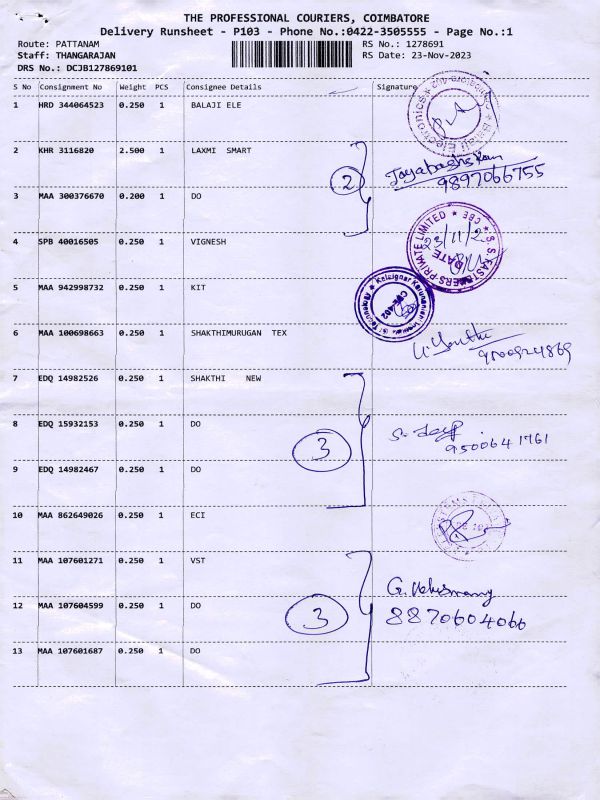 THE PROFESSIONAL COURIERS, COIMBATORE
Delivery Runsheet - P103 - Phone No.:0422-3505555 - Page No.:1
Route: PATTANAM RS No.: 1278691
Staff: THANGARAJAN RS Date: 23-Nov-2023
DRS No.: DCJB127869101
S No Consignment No Weight PCS Consignee Details Signature
1 HRD 344064523 0.250 1 BALAJI ELE
Balaji Electronics
2 KHR 3116820 2.500 1 LAXMI SMART
2 9897066755
3 MAA 300376670 0.200 1 DO
4 SPB 40016505 0.250 1 VIGNESH
PRIVATE LIMITED ★ CBE ★
23/11/2
DATE
5 MAA 942998732 0.250 1 KIT
Technology ★ Kalaignar Karunanidhi
6 MAA 100698663 0.250 1 SHAKTHIMURUGAN TEX
7 EDQ 14982526 0.250 1 SHAKTHI NEW
8 EDQ 15932153 0.250 1 DO
3 9500641761
9 EDQ 14982467 0.250 1 DO
10 MAA 862649026 0.250 1 ECI
11 MAA 107601271 0.250 1 VST
12 MAA 107604599 0.250 1 DO
3 8870604066
13 MAA 107601687 0.250 1 DO